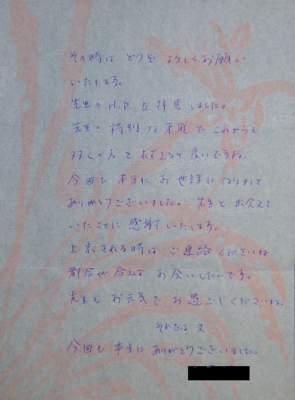 その時は どうぞ よろしくお願い
いたします。
先生の を拝見しました。
先生の 特別な才能で これからも
多くの方
今回も 本当に お世話になりまして
ありがとうございました。先生と お会えて
いたことに 感謝いたします。
上京される時は ご連絡くださいね
都合が合えば お会いしたいです。
お元気で お過ごしくださいね。
それでは 又
今回も 本当に ありがとうございました。